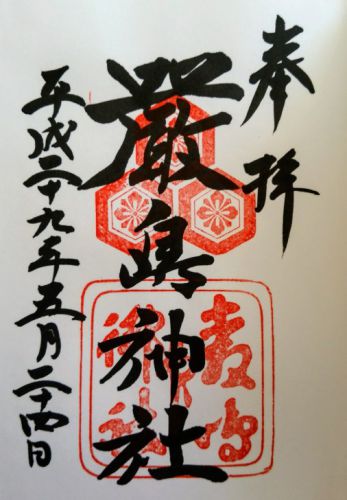 奉拝
嚴島神社
平成二十九年五月二十四日